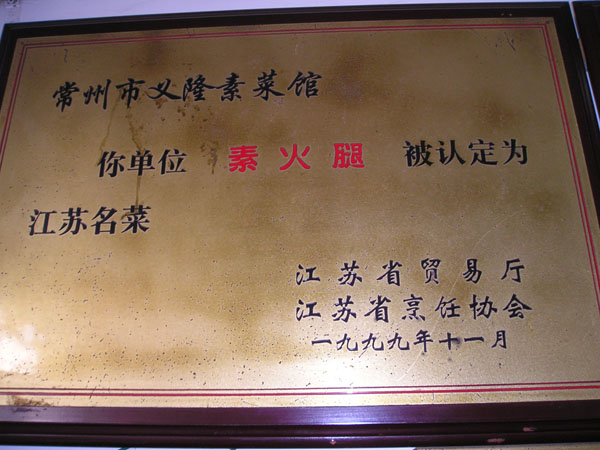 常州市义隆素菜馆
你单位 素火腿 被认定为
江苏名菜
江苏省贸易厅
江苏省烹饪协会
一九九九年十一月